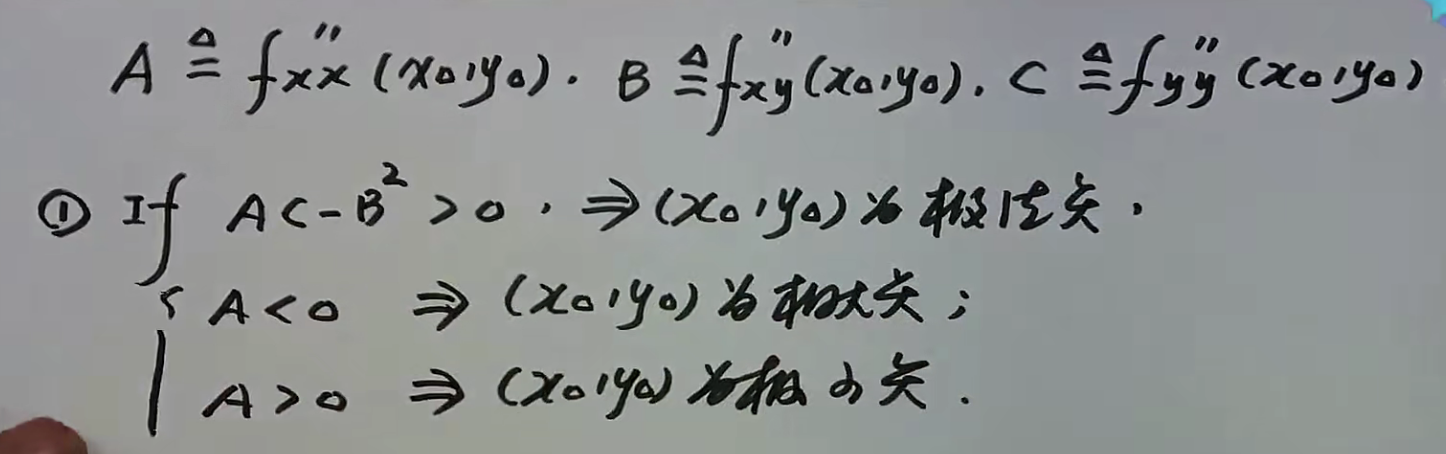 A ≜ f''xx (x₀,y₀). B ≜ f''xy (x₀,y₀). C ≜ f''yy (x₀,y₀)
① If AC-B²>0. ⇒(x₀,y₀)为极值点.
{ A<0 ⇒ (x₀,y₀)为极大点;
A>0 ⇒ (x₀,y₀)为极小点.